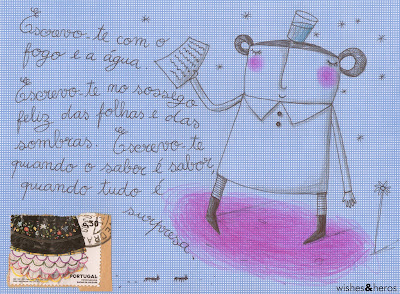 Escrevo-te com o
fogo e a água.
Escrevo-te no sossego
feliz das folhas e das
sombras. Escrevo-te
quando o sabor é sabor,
quando tudo é
surpresa.
0,30
PORTUGAL
wishes&heros